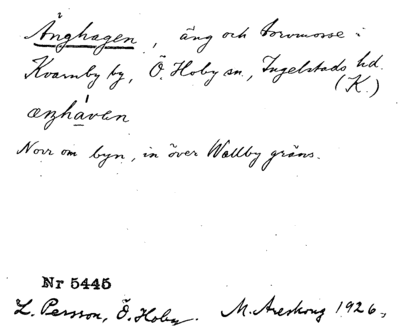 Änghagen, äng och torvmosse i
Kvarnby by, Ö. Hoby sn, Ingelstads hd.
(K.)
Norr om byn, in över Wallby gräns.
Nr 5445
L. Persson, Ö. Hoby. M. Areskoug 1926.